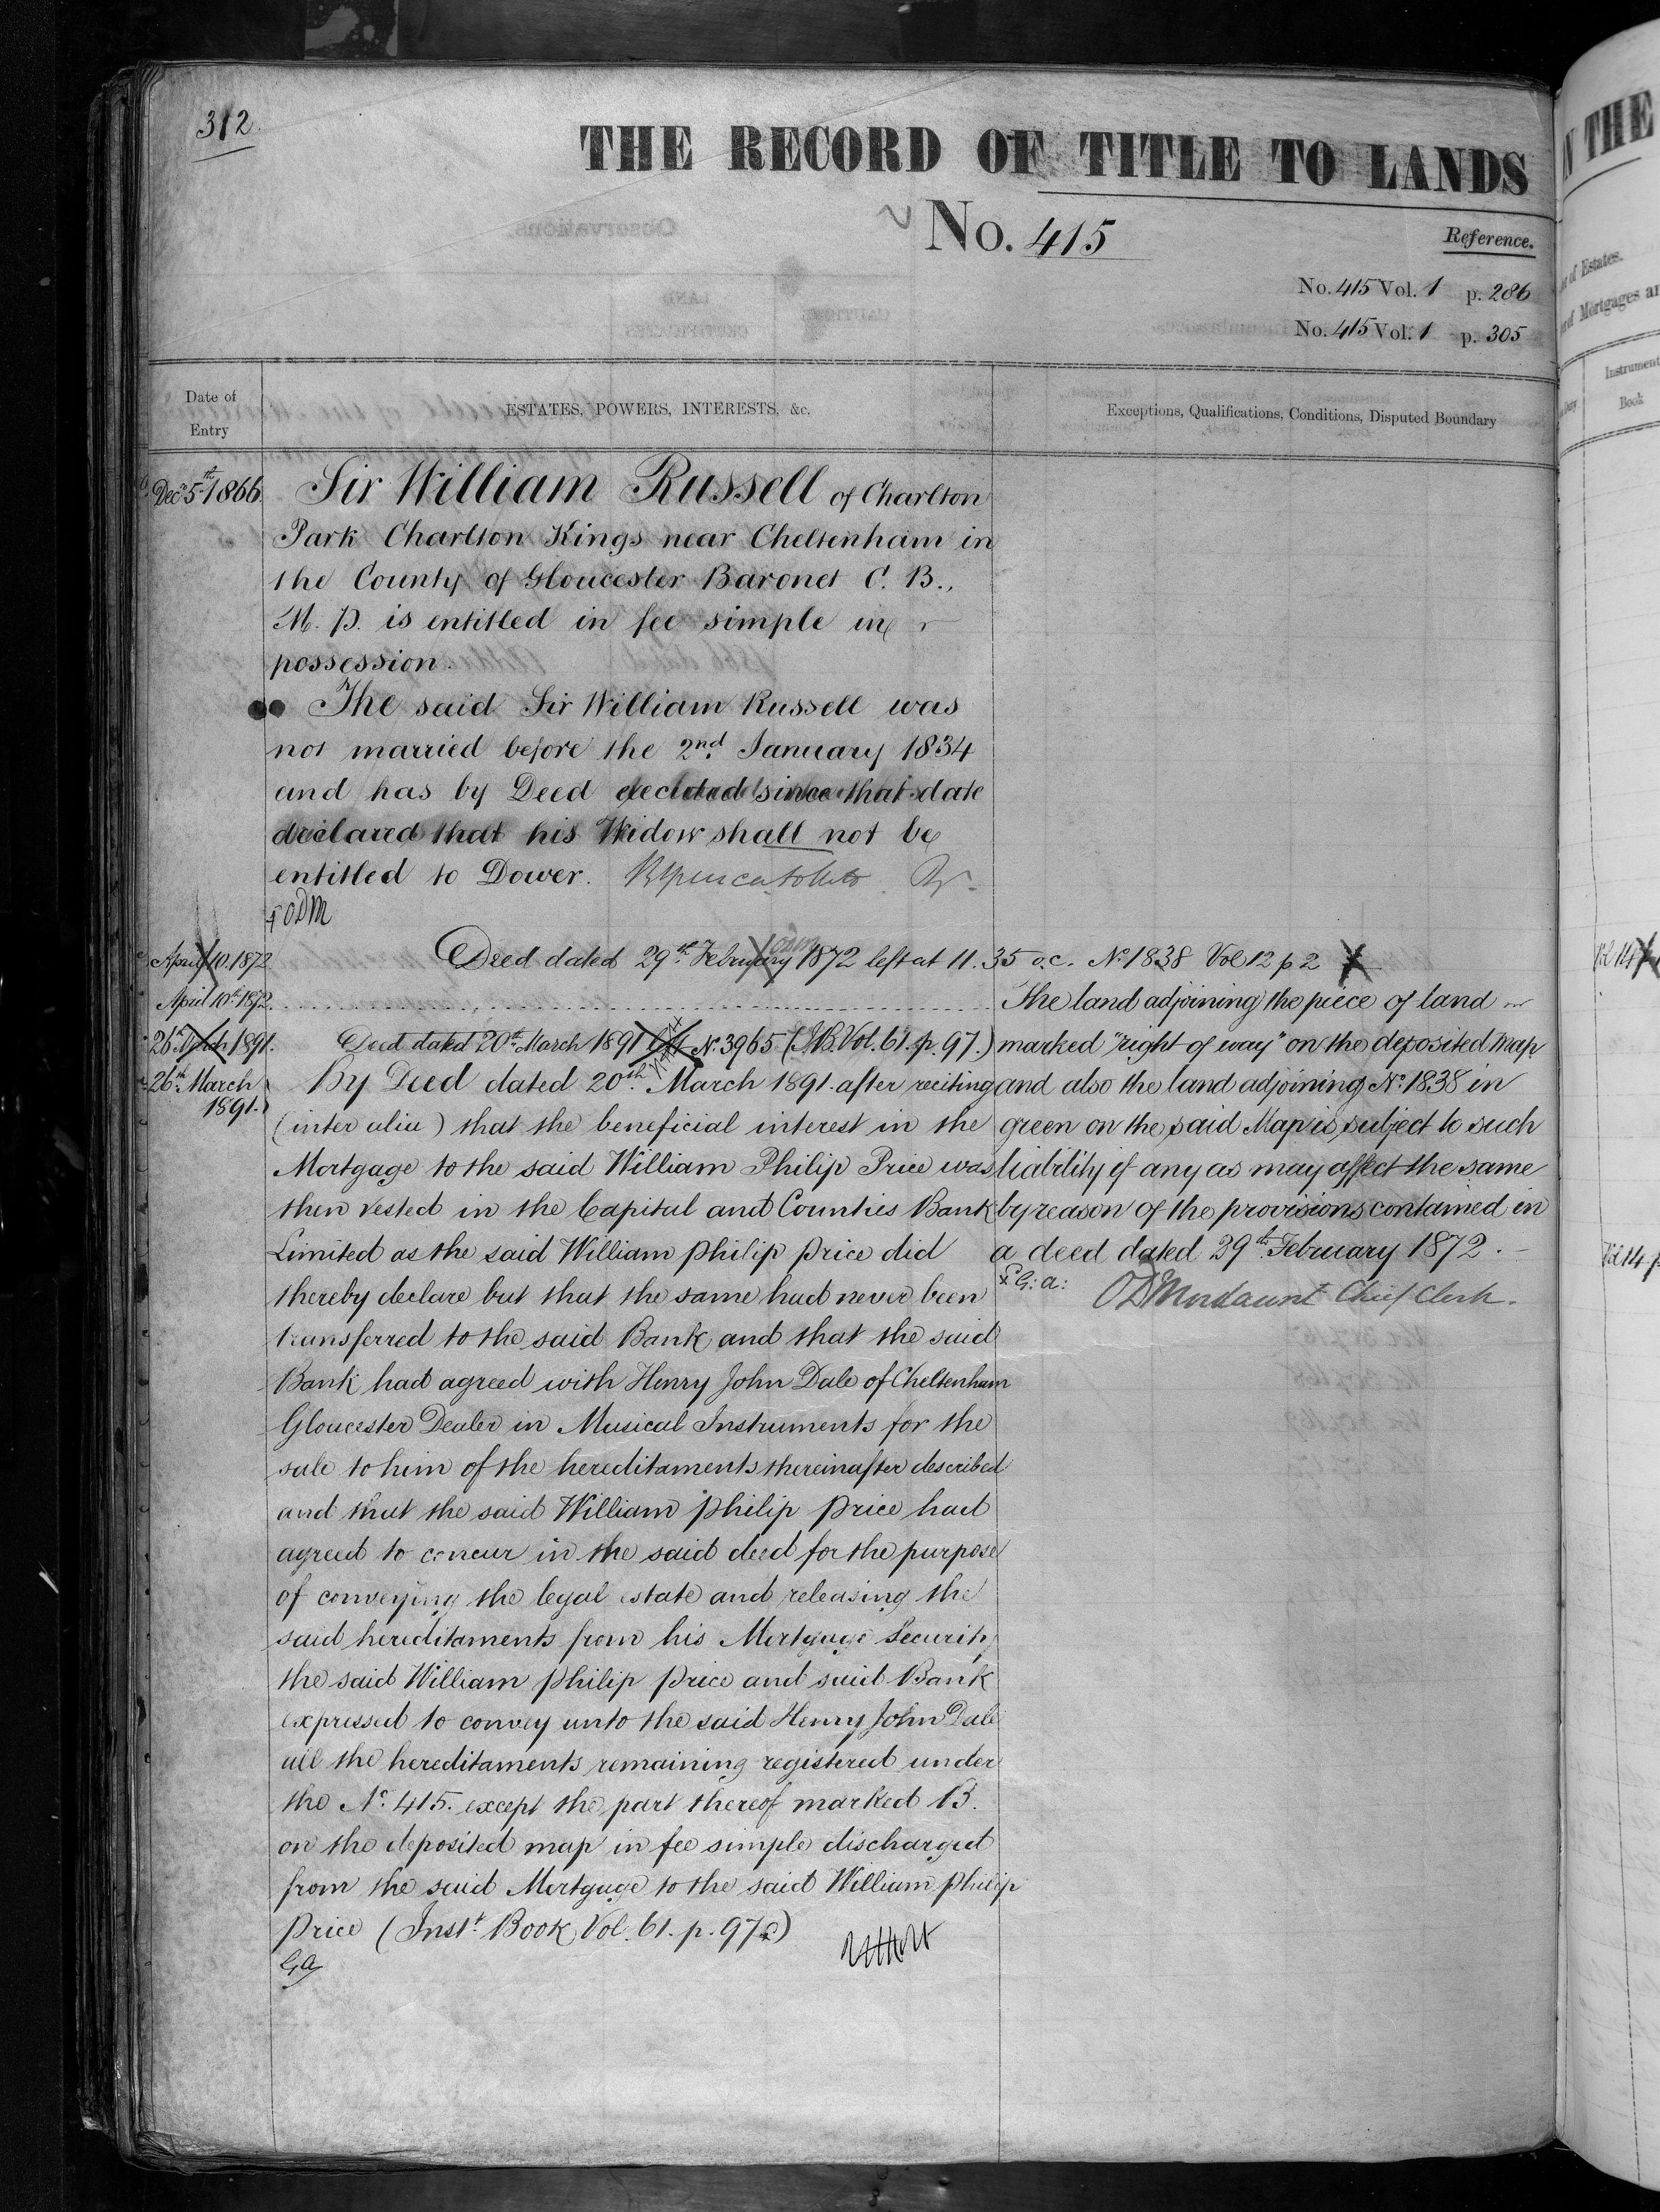 312
THE RECORD OF TITLE TO LANDS
No. 415
Reference.
No. 415 Vol. 1 p. 286
No. 415 Vol. 1 p. 305
Date of Entry
ESTATES, POWERS, INTERESTS, &c.
Exceptions, Qualifications, Conditions, Disputed Boundary
Decr 5th 1866
Sir William Russell of Charlton
Park Charlton Kings near Cheltenham in
the County of Gloucester Baronet C. B.,
M. P. is entitled in fee simple in
possession.
The said Sir William Russell was
not married before the 2nd January 1834
and has by Deed executed since that date
declared that his Widow shall not be
entitled to Dower.
ODM
April 10. 1872
Deed dated 29th February 1872 left at 11.35 o.c. No. 1838 Vol 12 p 2
April 10th 1872
26th March 1891.
Deed dated 20th March 1891 No. 3965 (I.B. Vol. 61. p. 97.)
26th March
1891.
By Deed dated 20th March 1891 after reciting
(inter alia) that the beneficial interest in the
Mortgage to the said William Philip Price was
then vested in the Capital and Counties Bank
Limited as the said William Philip Price did
thereby declare but that the same had never been
transferred to the said Bank and that the said
Bank had agreed with Henry John Dale of Cheltenham
Gloucester Dealer in Musical Instruments for the
sale to him of the hereditaments thereinafter described
and that the said William Philip Price had
agreed to concur in the said deed for the purpose
of conveying the legal estate and releasing the
said hereditaments from his Mortgage Security
the said William Philip Price and said Bank
expressed to convey unto the said Henry John Dale
all the hereditaments remaining registered under
the No. 415. except the part thereof marked B.
on the deposited map in fee simple discharged
from the said Mortgage to the said William Philip
Price (Inst. Book Vol. 61. p. 97)
G.A.
The land adjoining the piece of land
marked "right of way" on the deposited Map
and also the land adjoining No. 1838 in
green on the said Map is subject to such
liability if any as may affect the same
by reason of the provisions contained in
a deed dated 29th February 1872.
G. A.
ODMordaunt Chief Clerk.
IN THE
of Estates.
Instrument
Book